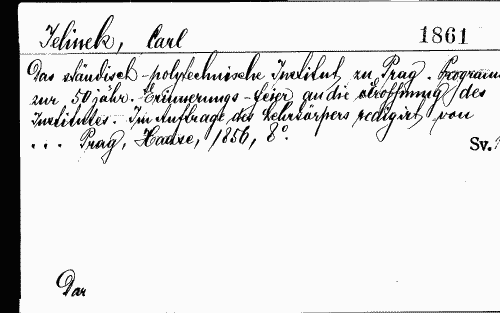 Jelinek, Carl 1861
Das ständisch-polytechnische Institut zu Prag. Programm
zur 50jähr. Erinnerungs-Feier an die Eröffnung des
Institutes. Im Auftrage des Lehrkörpers redigirt von
... Prag, Haase, 1856, 8°.
Sv.
Dar